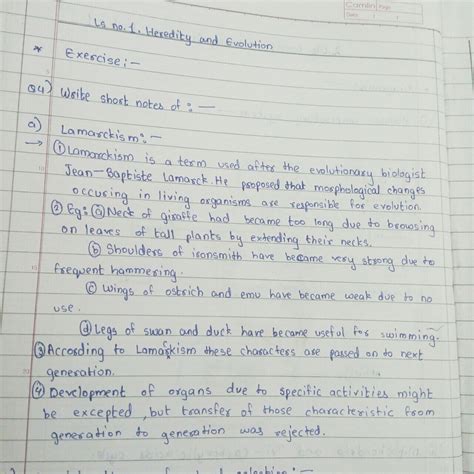 Camlin Page
Date / /
Ls no. 1. Heredity and Evolution
* Exercise:-
Q4) Write short notes of :-
a) Lamarckism:-
→ ① Lamarckism is a term used after the evolutionary biologist
Jean-Baptiste Lamarck. He proposed that morphological changes
occuring in living organisms are responsible for evolution.
② Eg: ⓐ Neck of giraffe had became too long due to browsing
on leaves of tall plants by extending their necks.
ⓑ Shoulders of ironsmith have became very strong due to
frequent hammering.
ⓒ Wings of ostrich and emu have became weak due to no
use.
ⓓ Legs of swan and duck have became useful for swimming.
③ According to Lamarckism these characters are passed on to next
generation.
④ Development of organs due to specific activities might
be excepted, but transfer of those characteristic from
generation to generation was rejected.